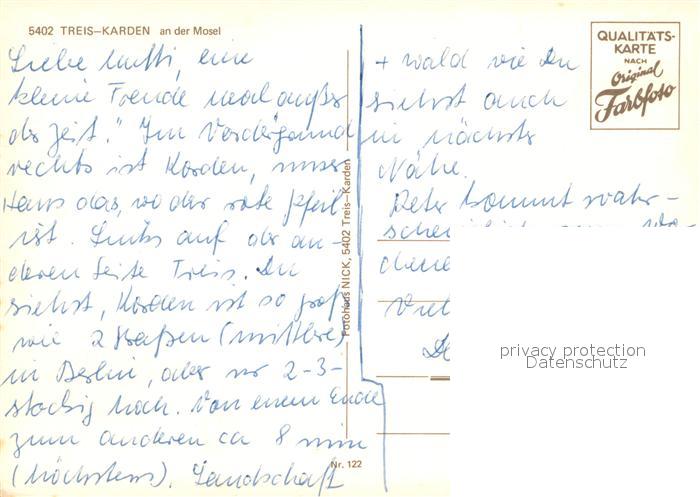 5402 TREIS–KARDEN an der Mosel
Liebe Mutti, eine
kleine Freude mal außer
der Zeit." Im Vordergrund
rechts ist Karden, unser
Haus das, wo der rote Pfeil
ist. Links auf der an-
deren Seite Treis. Du
siehst, Karden ist so groß
wie 2 Straßen (mittlere)
in Berlin, aber nur 2-3-
stöckig hoch. Von einem Ende
zum anderen ca 8 min
(höchstens). Landschaft
Fotohaus NICK, 5402 Treis–Karden
Nr. 122
QUALITÄTS-
KARTE
NACH
Original
Farbfoto
+ Wald wie Du
siehst auch
in nächster
Nähe.
Peter kommt wahr-
privacy protection
Datenschutz